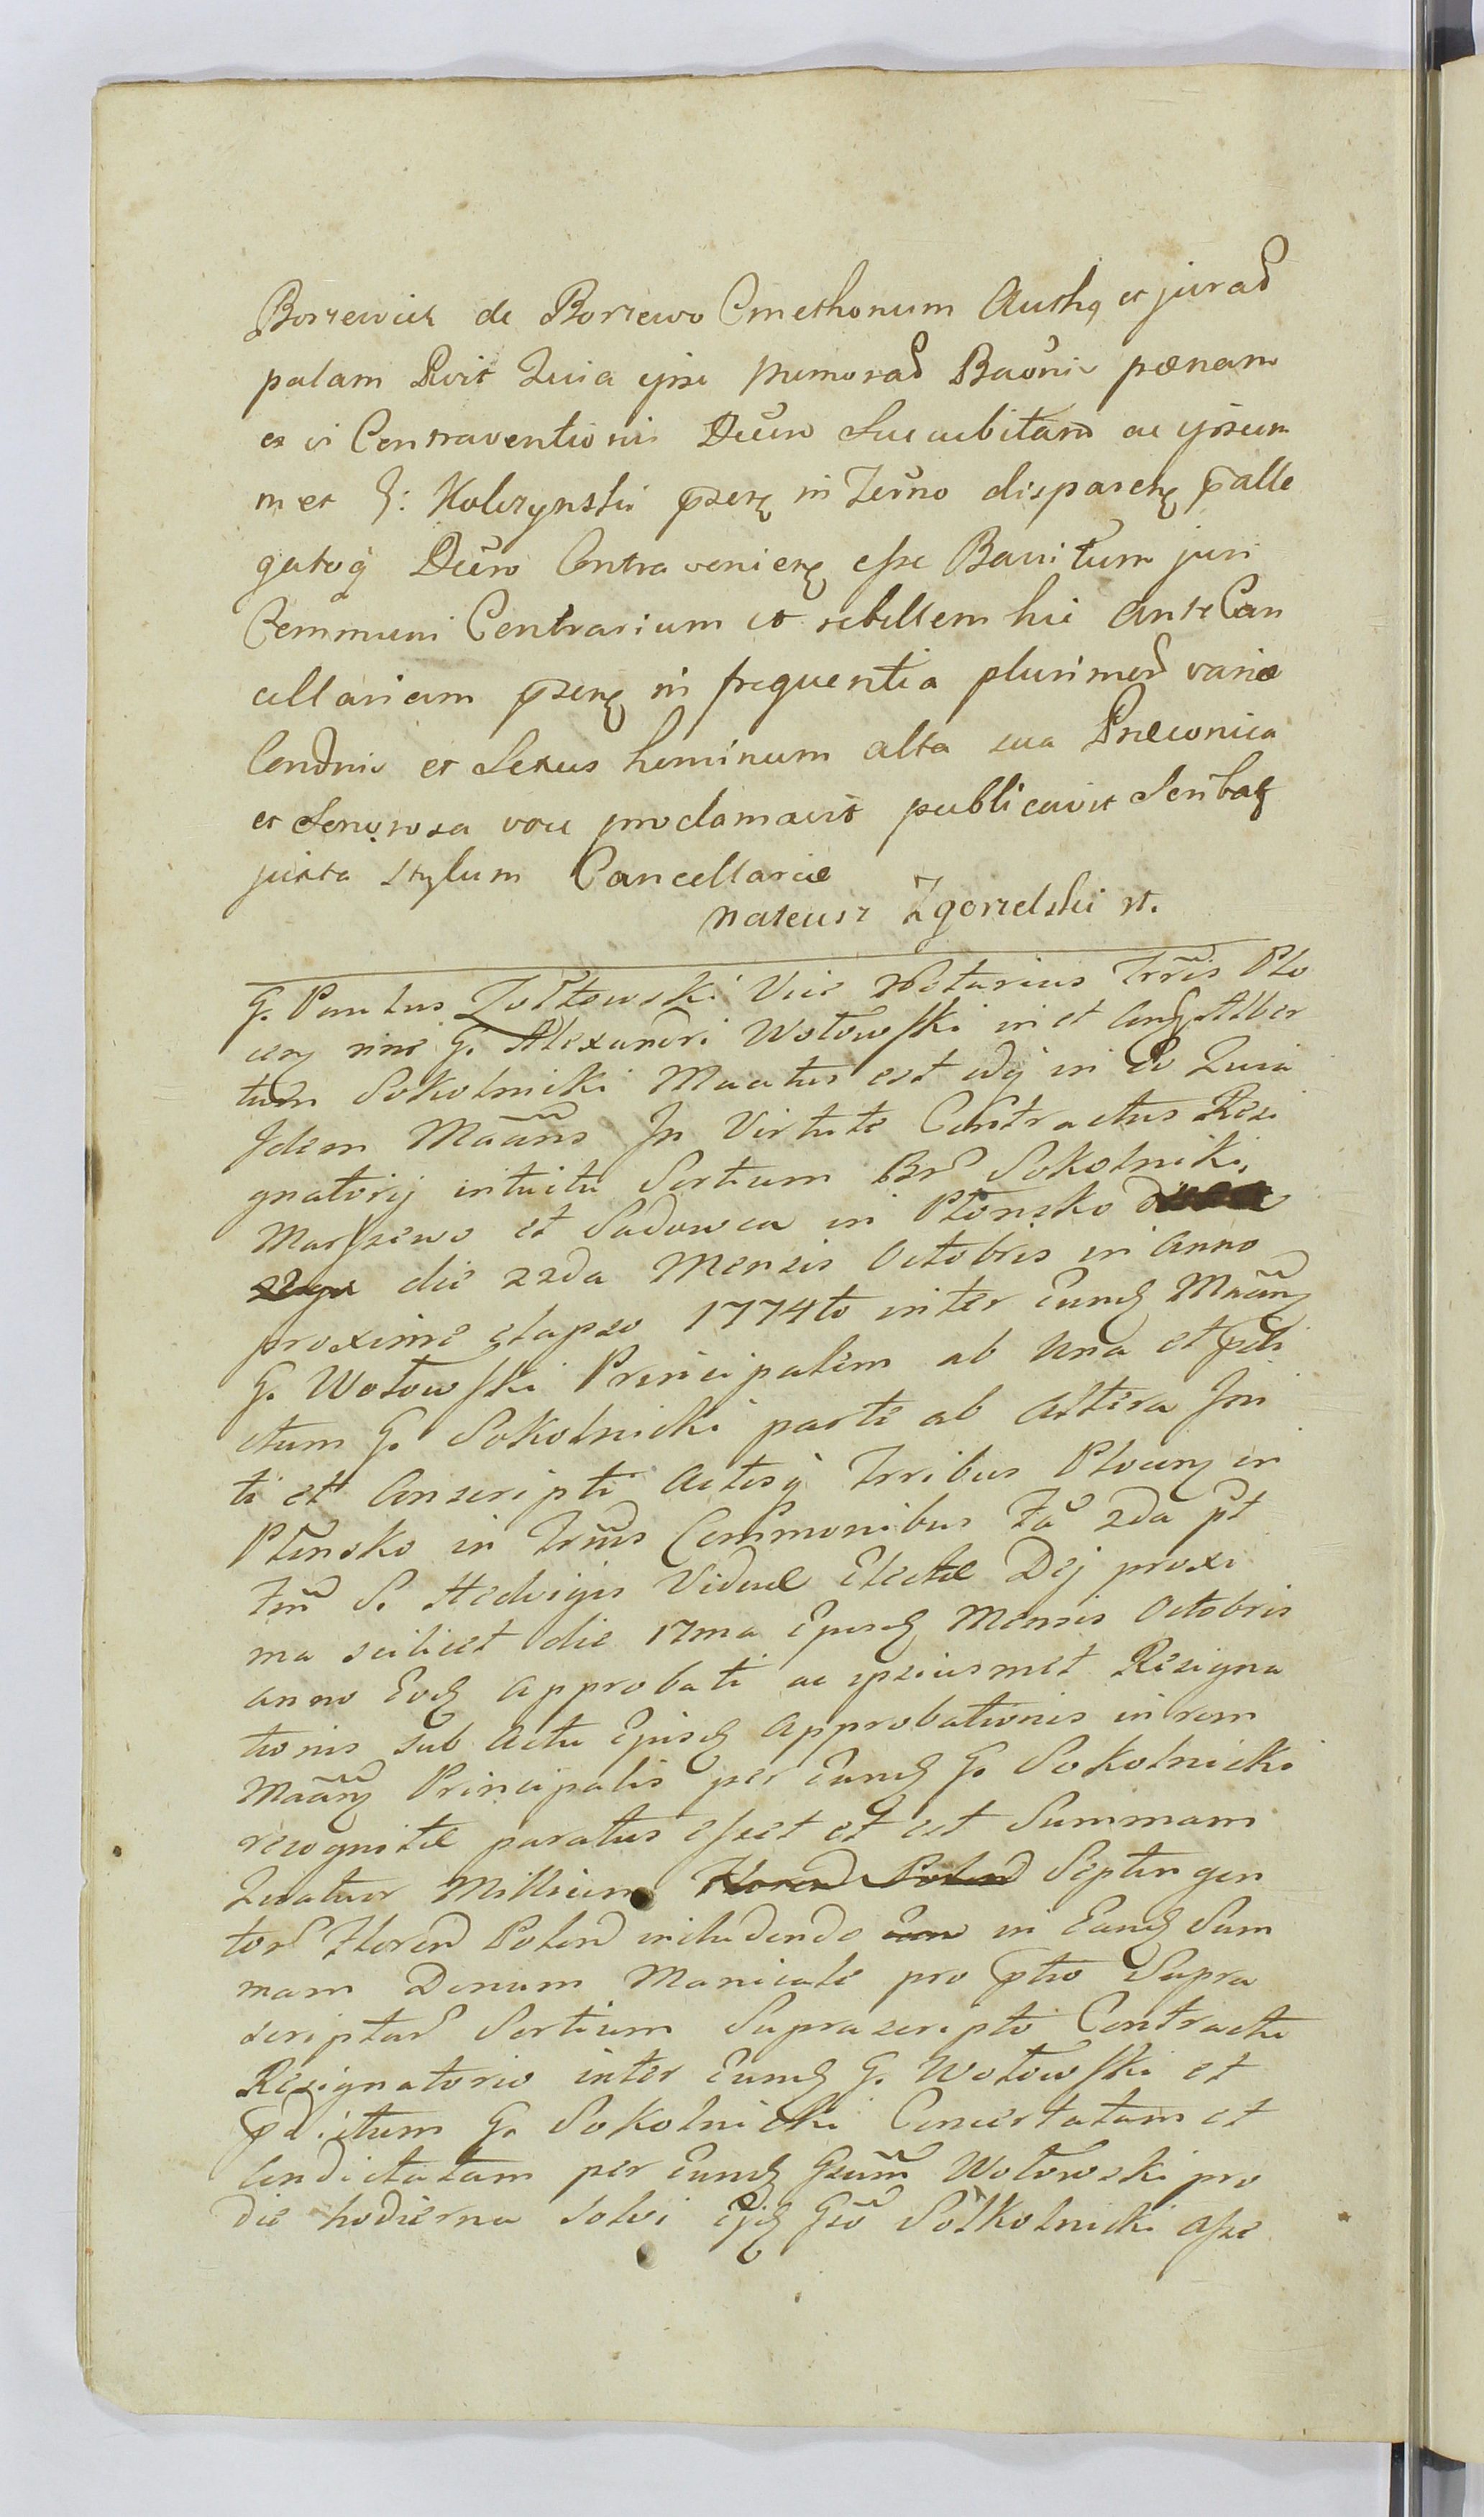 Borzewicz de Borzewo Cmethonum Authq et jurad
palam Rvit Quia ipse memorad Baonis pœnam
ex vi Contraventionis Decro Succubitam ac ipsum
met G: Kolczynski pserę in Terno disparerę palle
gatoq Decro Contravenierę esse Banitum juri
Communi Contrarium et rebellem hic Ante Can
cellariam pserę in frequentia plurimor variæ
Condnis et Sexus hominum alta sua Præconica
et Sonorosa voce proclamavit publicavit Scribaq
juxta stylum Cancellariæ
Mateusz Zgorzelski st.
G. Paulus Zołtowski Vice Notarius Trris Plo
cen nne G. Alexandri Wołowski in et Cong Alber
tum Sokolnicki Maatus est adij in Ro Quia
Idem Maans In Virtute Contractus Resi
gnatorij intuitu Sortium Br Sokolniki,
Marszewo et Sadowca in Płonsko
die 22da Mensis Octobris in Anno
proxime elapso 1774to inter Eund Maan
G. Wołowski Principalem ab una et prdi
ctum G. Sokolnicki parte ab Altera Ini
ti et Conscripti Actisq Trribus Plocen in
Płonsko in Trris Communibus Fa 2da pt
Fm S. Hedvigis Viduæ Electæ Dej proxi
ma scilicet die 17ma Ejusd Mensis Octobris
anno Eod Approbati ac ipsiusmet Resigna
tionis sub Actu Ejusd Approbationis in rem
Maan Principalis per Eund G. Sokolnicki
recognitæ paratus esset et est Summam
Quatuor Millium Floren Polon Septingen
tor Floren Polon includendo in Eand Sum
mam Donum Manicale pro ptio Supra
scriptar Sortium Suprascripto Contractu
Resignatorio inter Eund G. Wołowski et
pdictum G. Sokolnicki Concertatam et
Condictatam per Eund Gsum Wołowski pro
die hodierna solvi Ejd Gso Sokolnicki asse